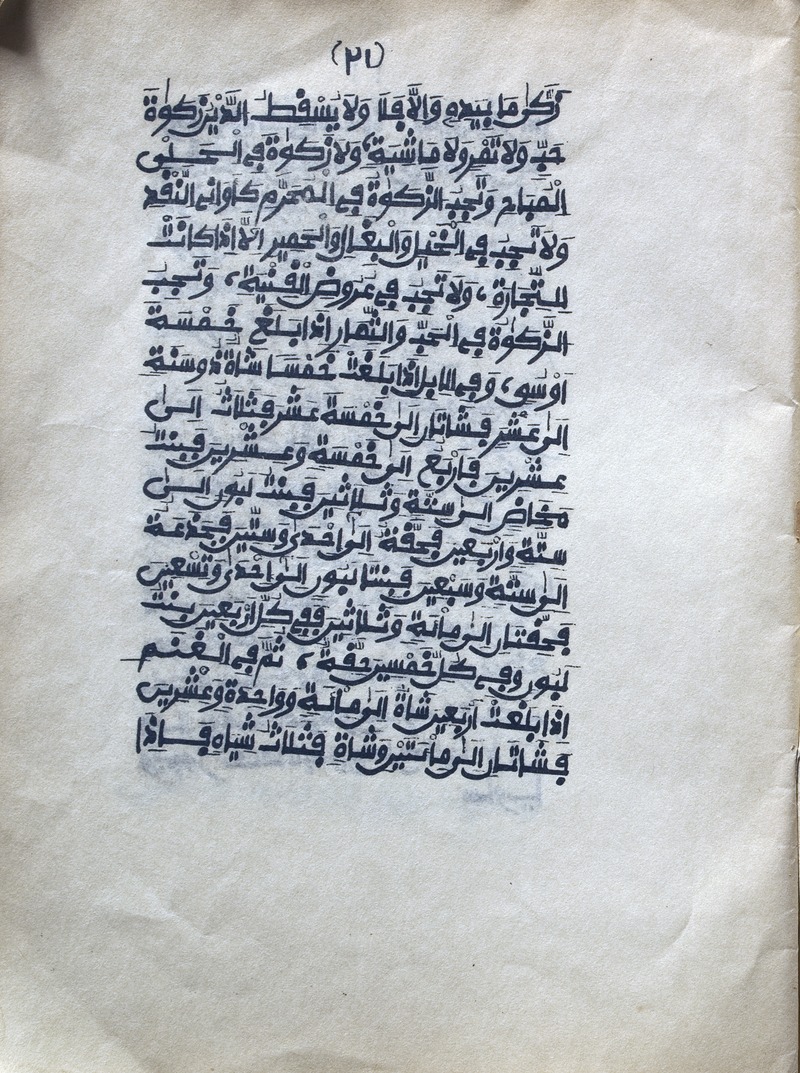 (٢١)
زَكّٰى مَا بِيَدِهِ وَاِلَّا فَلَا وَلَا يُسْقِطُ الدَّيْنُ زَكٰوةَ
حَبٍّ وَلَا تَمْرٍ وَلَا مَاشِيَةٍ، وَلَا زَكٰوةَ فِي الْحُلِيِّ
الْمُبَاحِ وَتَجِبُ الزَّكٰوةُ فِي الْمُحَرَّمِ كَاَوَانِي النَّقْدِ
وَلَا تَجِبُ فِي الْخَيْلِ وَالْبِغَالِ وَالْحَمِيرِ اِلَّا اِذَا كَانَتْ
لِلتِّجَارَةِ، وَلَا تَجِبُ فِي عُرُوضِ الْقُنْيَةِ، وَتَجِبُ
الزَّكٰوةُ فِي الْحَبِّ وَالثِّمَارِ اِذَا بَلَغَ خَمْسَةَ
اَوْسُقٍ، وَفِي الْاِبِلِ اِذَا بَلَغَتْ خَمْسًا شَاةٌ ذُو سَنَةٍ
اِلٰى عَشْرٍ فَشَاتَانِ اِلٰى خَمْسَةَ عَشَرَ فَثَلَاثٌ اِلٰى
عِشْرِينَ فَاَرْبَعٌ اِلٰى خَمْسَةٍ وَعِشْرِينَ فَبِنْتُ
مَخَاضٍ اِلٰى سِتَّةٍ وَثَلَاثِينَ فَبِنْتُ لَبُونٍ اِلٰى
سِتَّةٍ وَاَرْبَعِينَ فَحِقَّةٌ اِلٰى اِحْدٰى وَسِتِّينَ فَجَذَعَةٌ
اِلٰى سِتَّةٍ وَسَبْعِينَ فَبِنْتَا لَبُونٍ اِلٰى اِحْدٰى وَتِسْعِينَ
فَحِقَّتَانِ اِلٰى مِائَةٍ وَثَلَاثِينَ فَفِي كُلِّ اَرْبَعِينَ بِنْتُ
لَبُونٍ وَفِي كُلِّ خَمْسِينَ حِقَّةٌ، ثُمَّ فِي الْغَنَمِ
اِذَا بَلَغَتْ اَرْبَعِينَ شَاةٌ اِلٰى مِائَةٍ وَوَاحِدَةٍ وَعِشْرِينَ
فَشَاتَانِ اِلٰى مِائَتَيْنِ وَشَاةٍ فَثَلَاثُ شِيَاهٍ فَاِذَا